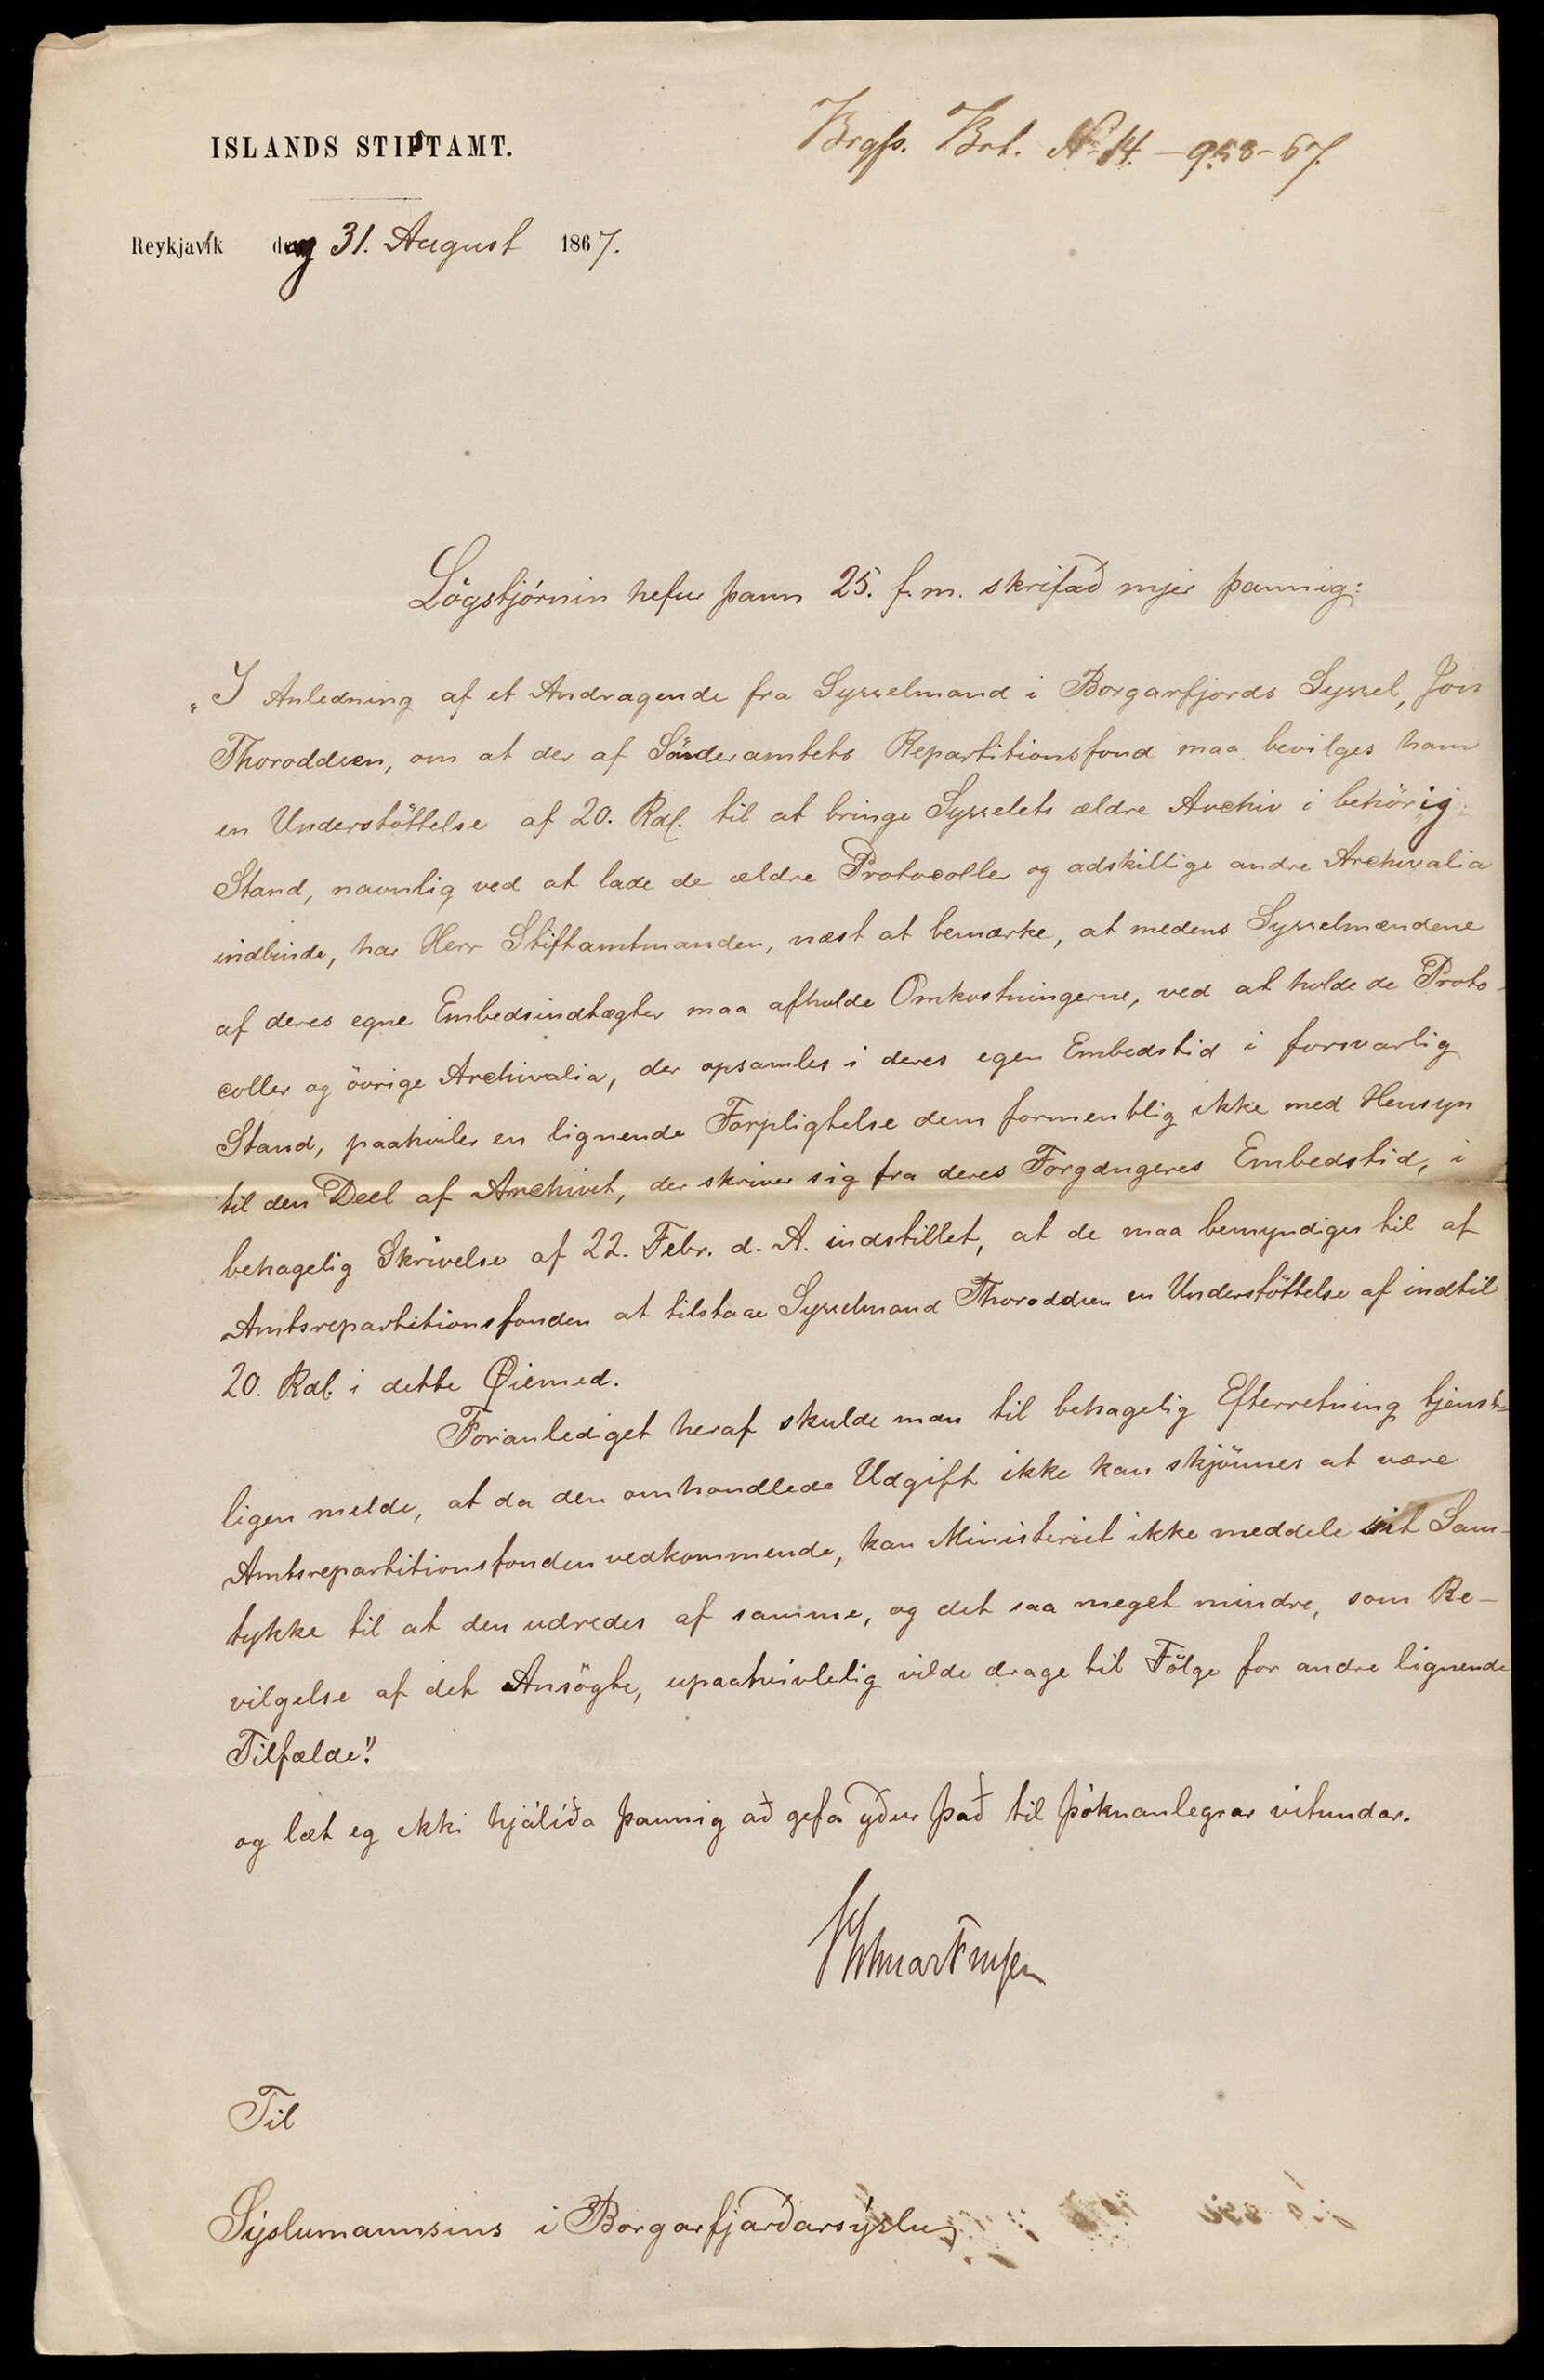 ISLANDS STIPTAMT.
Brgfs. Brt. No 14. – 958 – 67.
Reykjavík dag 31. August 1867.
Lögstjórnin hefur þann 25. f. m. skrifað mjer þannig:
„I Anledning af et Andragende fra Sysselmand i Borgarfjords Syssel, Jón
Thoroddsen, om at der af Sönderamtets Repartitionsfond maa bevilges ham
en Understöttelse af 20. Rdl. til at bringe Sysselets ældre Archiv i behörig
Stand, navnlig ved at lade de ældre Protocoller og adskillige andre Archivalia
indbinde, har Herr Stiftamtmanden, næst at bemærke, at medens Sysselmændene
af deres egne Embedsindtægter maa afholde Omkostningerne, ved at holde de Proto-
coller og övrige Archivalia, der opsamles i deres egen Embedstid i forsvarlig
Stand, paahviler en lignende Forpligtelse dem formentlig ikke med Hensyn
til den Deel af Archivet, der skriver sig fra deres Forgængeres Embedstid, i
behagelig Skrivelse af 22. Febr. d. A. indstillet, at de maa bemyndiges til af
Amtsrepartitionsfonden at tilstaae Sysselmand Thoroddsen en Understöttelse af indtil
20. Rdl. i dette Øiemed.
Foranlediget heraf skulde man til behagelig Efterretning tjenst-
ligen melde, at da den omhandlede Udgift ikke kan skjönnes at være
Amtsrepartitionsfonden vedkommende, kan Ministeriet ikke meddele sit Sam-
tykke til at den udredes af samme, og det saa meget mindre, som Be-
vilgelse af det Ansögte, upaatvivlelig vilde drage til Fölge for andre lignende
Tilfælde."
og læt eg ekki hjálíða þannig að gefa yður það til þóknanlegrar vitundar.
Hilmar Finsen
Til
Sýslumannsins í Borgarfjarðarsýslu